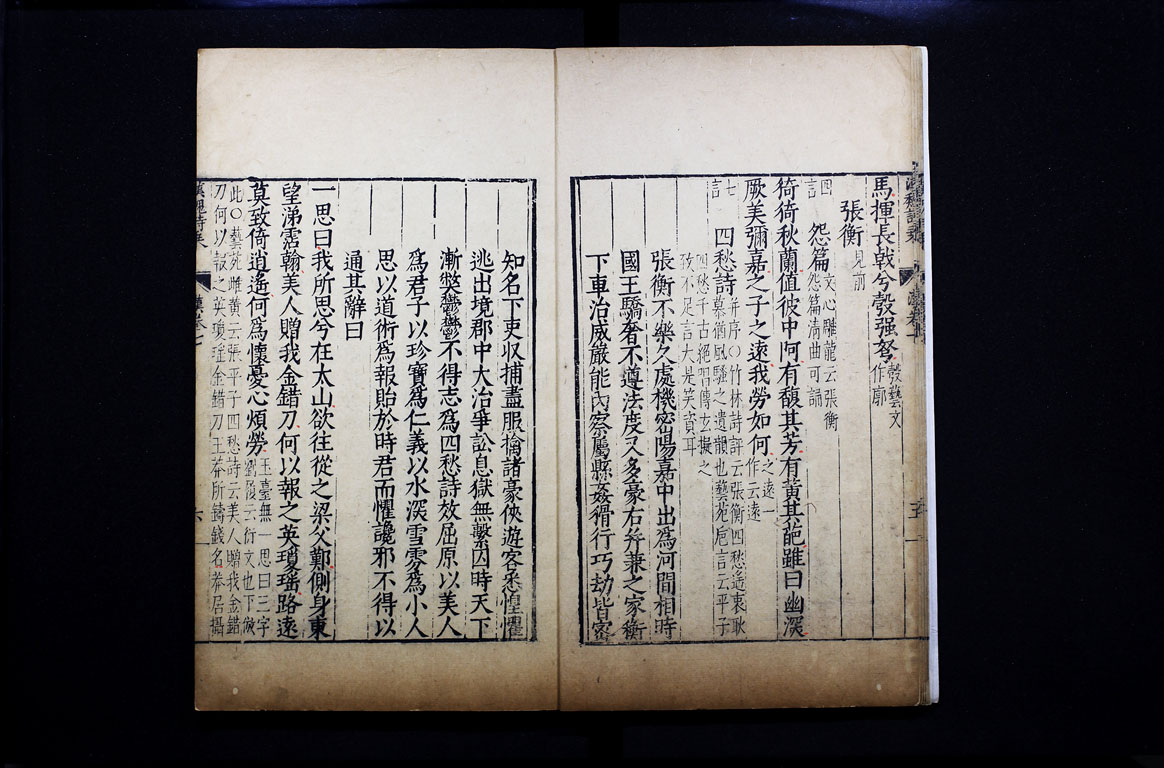 馬揮長戟兮彀强弩彀藝文作廓
張衡見前
怨篇文心雕龍云張衡怨篇清曲可誦
四言
猗猗秋蘭值彼中阿有馥其芳有黃其葩雖曰幽深
厥美彌嘉之子之遠我勞如何之遠一作云遠
四愁詩并序○竹林詩評云張衡四愁遙衷耿慕猶風騷之遺韻也藝苑卮言云平子
七言
四愁千古絕唱傅玄擬之致不足言大是笑資耳
張衡不樂久處機密陽嘉中出爲河間相時
國王驕奢不遵法度又多豪右并兼之家衡
下車治威嚴能內察屬縣姦猾行巧劫皆密
知名下吏收捕盡服擒諸豪俠遊客悉惶懼
逃出境郡中大治爭訟息獄無繫囚時天下
漸獘鬱鬱不得志爲四愁詩放屈原以美人
爲君子以珍寶爲仁義以水深雪雰爲小人
思以道術爲報貽於時君而懼讒邪不得以
通其辭曰
一思曰我所思兮在太山欲往從之梁父艱側身東
望涕霑翰美人贈我金錯刀何以報之英瓊瑤路遠
莫致倚逍遙何爲懷憂心煩勞玉臺無一思曰三字劉履云衍文也下倣
此○藝苑雌黃云張平子四愁詩云美人贈我金錯
刀何以報之英瓊瑤金錯刀王莽所鑄錢名莽居攝
漢魏詩乘
六
五